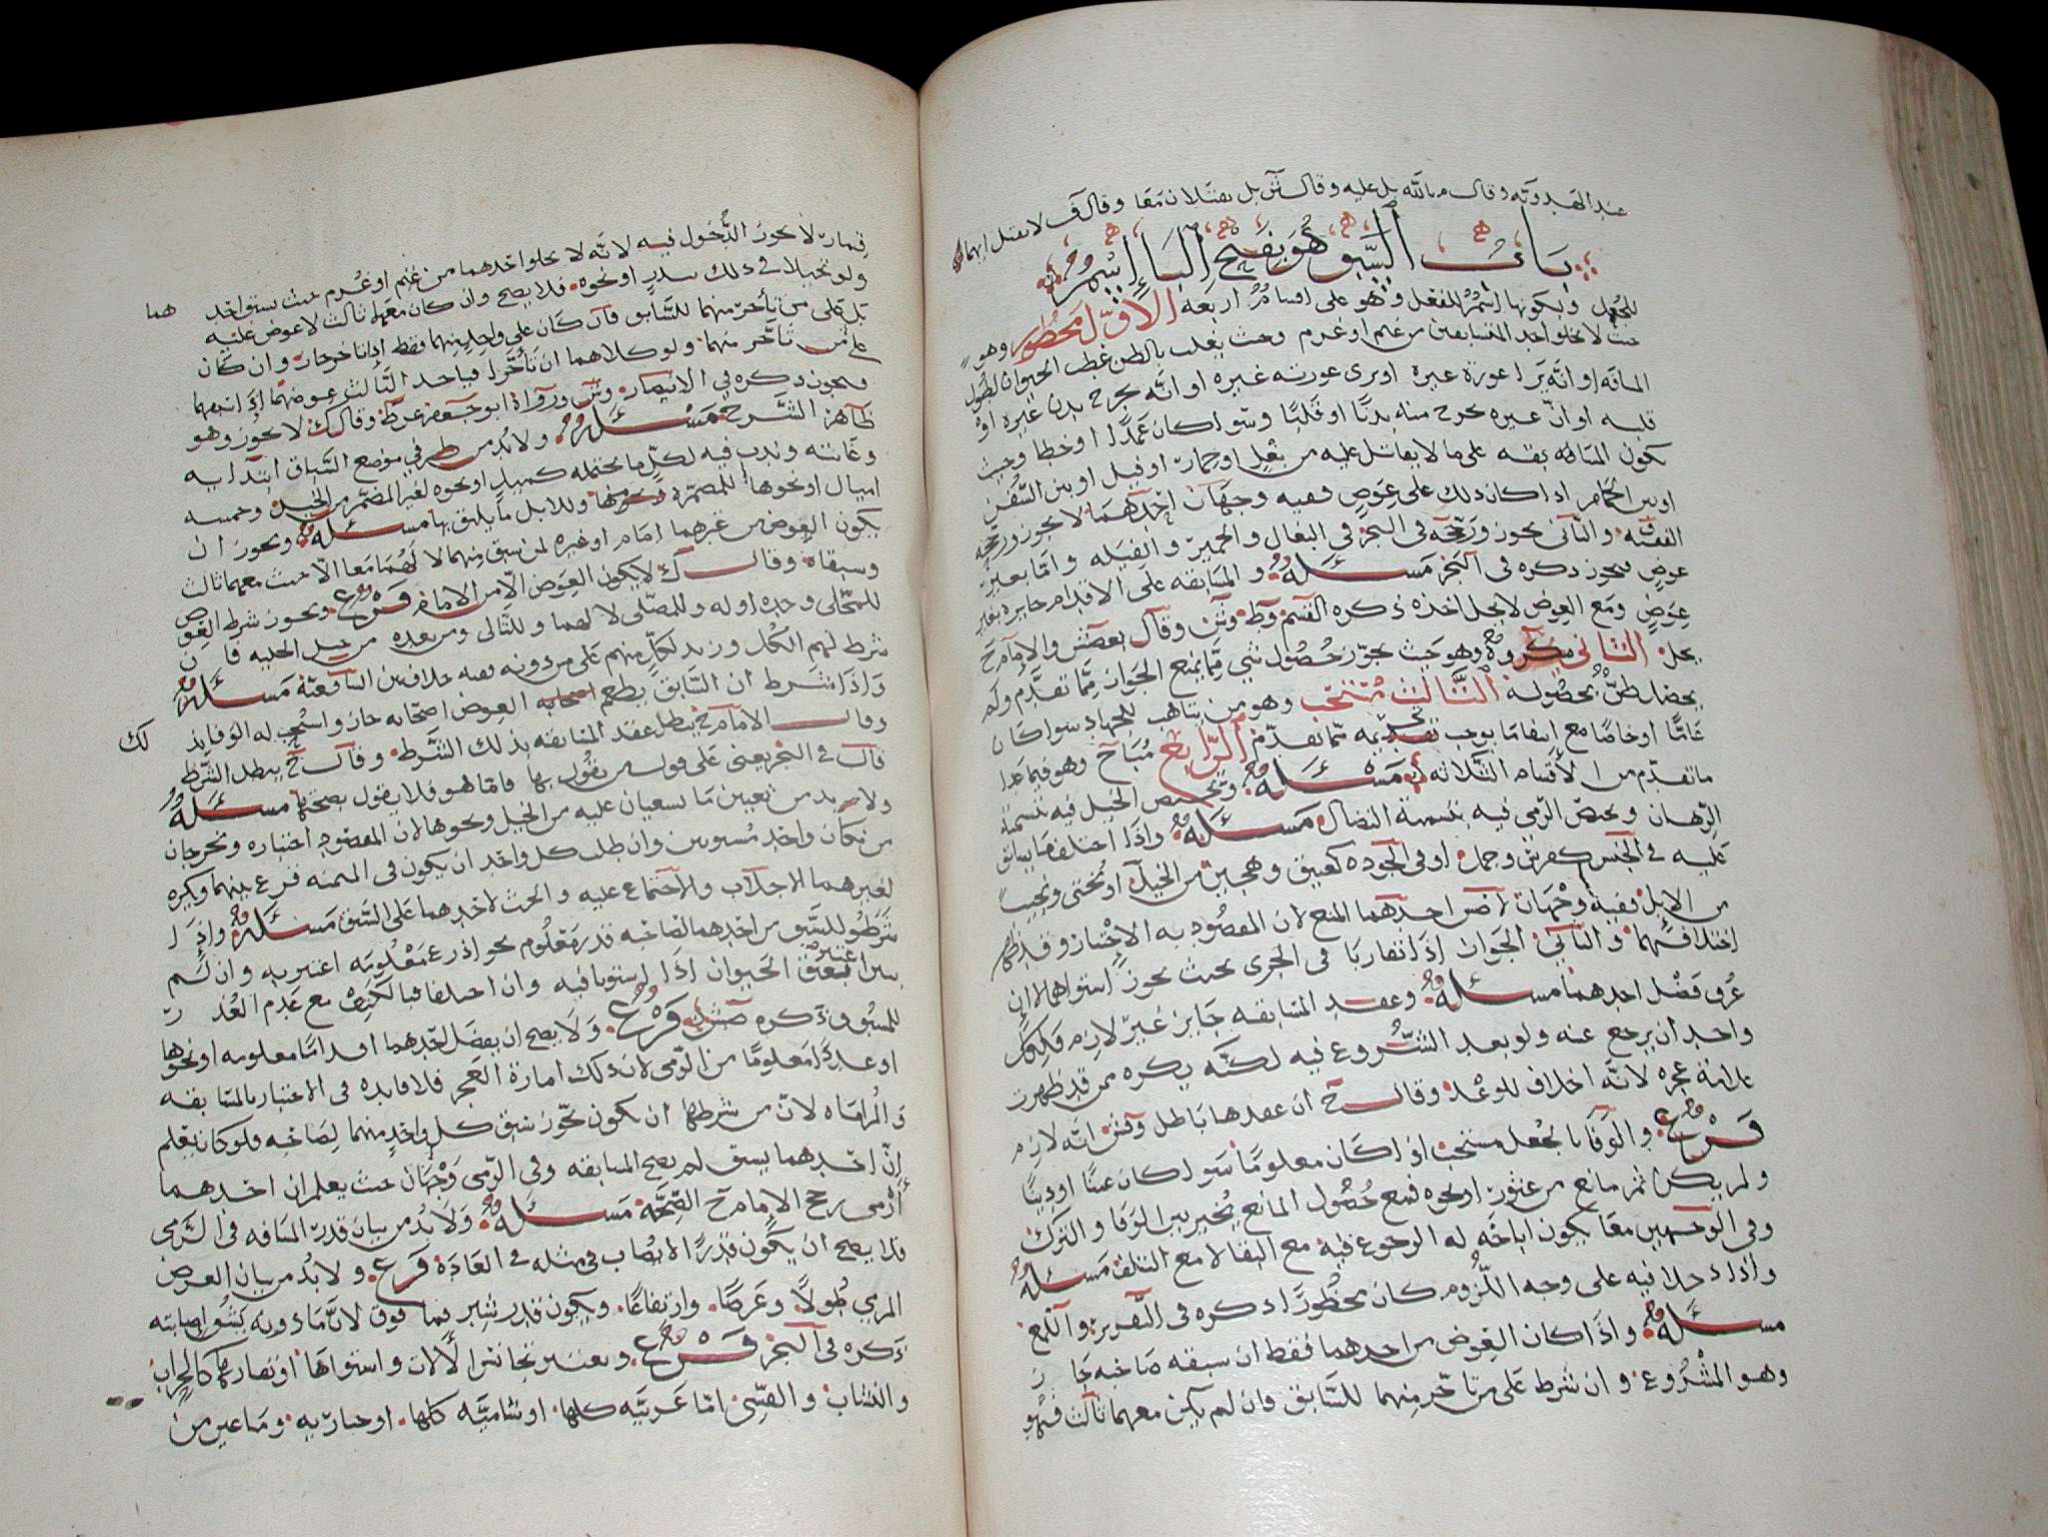 عند الهدوية وقال م بالله بل عليه وقال ش بل يقتلان معا وقال ف لا يقتل ايهما
باب السبق هو بفتح الباء اسم
للجعل وبكونها اسم للفعل وهو على اقسام اربعة الاول محظور وهو
حيث لا يخلو احد المتسابقين من غنم او غرم وحيث يغلب بالظن عطب الحيوان لطول
المسافة او انه يرا عورة غيره او يرى عورته غيره او انه يجرح بدن غيره او
قلبه او ان غيره يجرح منه بدنا او قلبا وسوا كان عمدا او خطا وحيث
تكون المسابقة على ما لا يقاتل عليه من بغل او حمار او فيل او بين السفن
او بين الحمام اذا كان ذلك على عوض ففيه وجهان احدهما لا يجوز ورجحه
الفقيه والثاني يجوز ورجحه في البحر في البغال والحمير والفيلة واما بغير
عوض فيجوز ذكره في البحر مسئلة والمسابقة على الاقدام جايزة بغير
عوض ومع العوض لا يحل اخذه ذكره القسم وط وش وقال بعصش والامام ح
يحل الثاني مكروه وهو حيث يجوز حصول شي مما يمنع الجواز مما تقدم ولم
يحصل ظن بحصوله الثالث مستحب وهو من يتاهب للجهاد سوا كان
عاما او خاصا مع انتفا ما يوجب تحريمه مما تقدم الرابع مباح وهو فيما عدا
ما تقدم من الاقسام الثلاثة مسئلة وتختص الخيل فيه بتسمية
الرهان ويختص الرمي فيه بتسمية النضال مسئلة واذا اختلف ما يسابق
عليه في الجنس كفرس وجمل او في الجودة كعتيق وهجين من الخيل او بختي ونجيب
من الابل ففيه وجهان لاص احدهما المنع لان المقصود به الاختبار وقد ظهر
اختلافهما والثاني الجواز اذا تقاربا في الجري بحيث يجوز استواهما لا ان
عرف فضل احدهما مسئلة وعقد المسابقة جايز غير لازم فلكل
واحد ان يرجع عنه ولو بعد الشروع فيه لكنه يكره ممن قد ظهرت
علامة عجزه لانه اخلاف للوعد وقال ح ان عقدها باطل وقش انه لازم
فرع والوفا بالجعل مستحب اذا كان معلوما سوا كان عينا او دينا
ولم يكن ثم مانع من عثور او نحوه فمع حصول المانع يخير بين الوفا والترك
وفي الوجهين معا يكون اباحة له الرجوع فيه مع البقا لا مع التلف مسئلة
واذا دخلا فيه على وجه اللزوم كان محظورا ذكره في التقرير واللمع
مسئلة واذا كان العوض من احدهما فقط ان سبقه صاحبه جا ز
وهو المشروع وان شرط على من تاخر منهما للسابق وان لم يكن معهما ثالث فهو
قمار لا يجوز الدخول فيه لانه لا يخلو احدهما من غنم او غرم حيث يسبق احد هما
ولو تحيلا في ذلك بنذر او نحوه فلا يصح وان كان معهما ثالث لا عوض عليه
بل على من تأخر منهما للسابق فان كان على واحد منهما فقط اذا تاخر جاز وان كان
على من تأخر منهما ولو كلاهما ان تأخرا فياخذ الثالث عوضهما اذا سبقهما
فيجوز ذكره في الانتصار وش ورواه ابو جعفر عن ط وقال ك لا يجوز وهو
ظاهر الشرح مسئلة ولا بد من طرفي موضع السباق ابتدايه
وغايته وندب فيه لكل ما يحتمله كميل او نحوه لغير المضمر من الخيل وخمسة
اميال او نحوها للمضمرة وللابل ما يليق بها مسئلة ويجوز ان
يكون العوض من غيرهما امام او غيره لمن سبق منهما لا لهما معا الا حيث معهما ثالث
وسبقاه وقال ك لا يكون العوض الا من الامام فرع ويجوز شرط العوض
للمجلى وحده او له وللمصلى لا لهما وللتالي ومن بعده من خيل الحلبة فان
شرط لهم الكل وزيد لكل منهم على من دونه ففيه خلاف بين الشافعية مسئلة
واذا شرط ان السابق يطعم العوض اصحابه جاز واستحب له الوفا بذ لك
وقال الامام ح يبطل عقد المسابقة بذلك الشرط وقال ح يبطل الشرط
قال في البحر يعني على قول من يقول بها فاما هو فلا يقول بصحتها مسئلة
ولا بد من تعيين ما يسعيان عليه من الخيل ونحوها لان المقصود اختباره ويخرجان
من مكان واحد مستويين وان طلب كل واحد ان يكون في الميمنة قرع بينهما ويكره
لغيرهما الاجلاب والاجتماع عليه والحث لاحدهما على السبق مسئلة واذا
شرطوا للسبق من احدهما لصاحبه قدر معلوم نحو اذرع معلومة اعتبر به وان لم
اعتبر بعنق الحيوان اذا استويا فيه وان اختلفا فبالكتف مع عدم العذ ر
للمسبوق ذكره صش فرع ولا يصح ان يفضل احدهما اقداما معلومة او نحوها
او عددا معلوما من الرمي لان ذلك امارة العجز فلا فايدة في الاختبار بالمسابقة
والمراماة لان من شرطها ان يكون يجوز سبق كل واحد منهما لصاحبه فلو كان يعلم
ان احدهما يسبق لم يصح المسابقة وفي الرمي وجهان حيث يعلم ان احدهما
أرمى رجح الامام ح الصحة مسئلة ولا بد من بيان قدر المسافة في الرمي
فلا يصح ان يكون قدرا لا يصاب في مثله في العادة فرع ولا بد من بيان الغرض
المرمي طولا وعرضا وارتفاعا ويكون قدر شبر فما فوق لان ما دونه يشق اصابته
ذكره في البحر فرع ويعتبر تجانس الالات واستواها او تقاربها كالحراب
والنشاب والقسي اما عربية كلها او شامية كلها او حنارية وما عين من